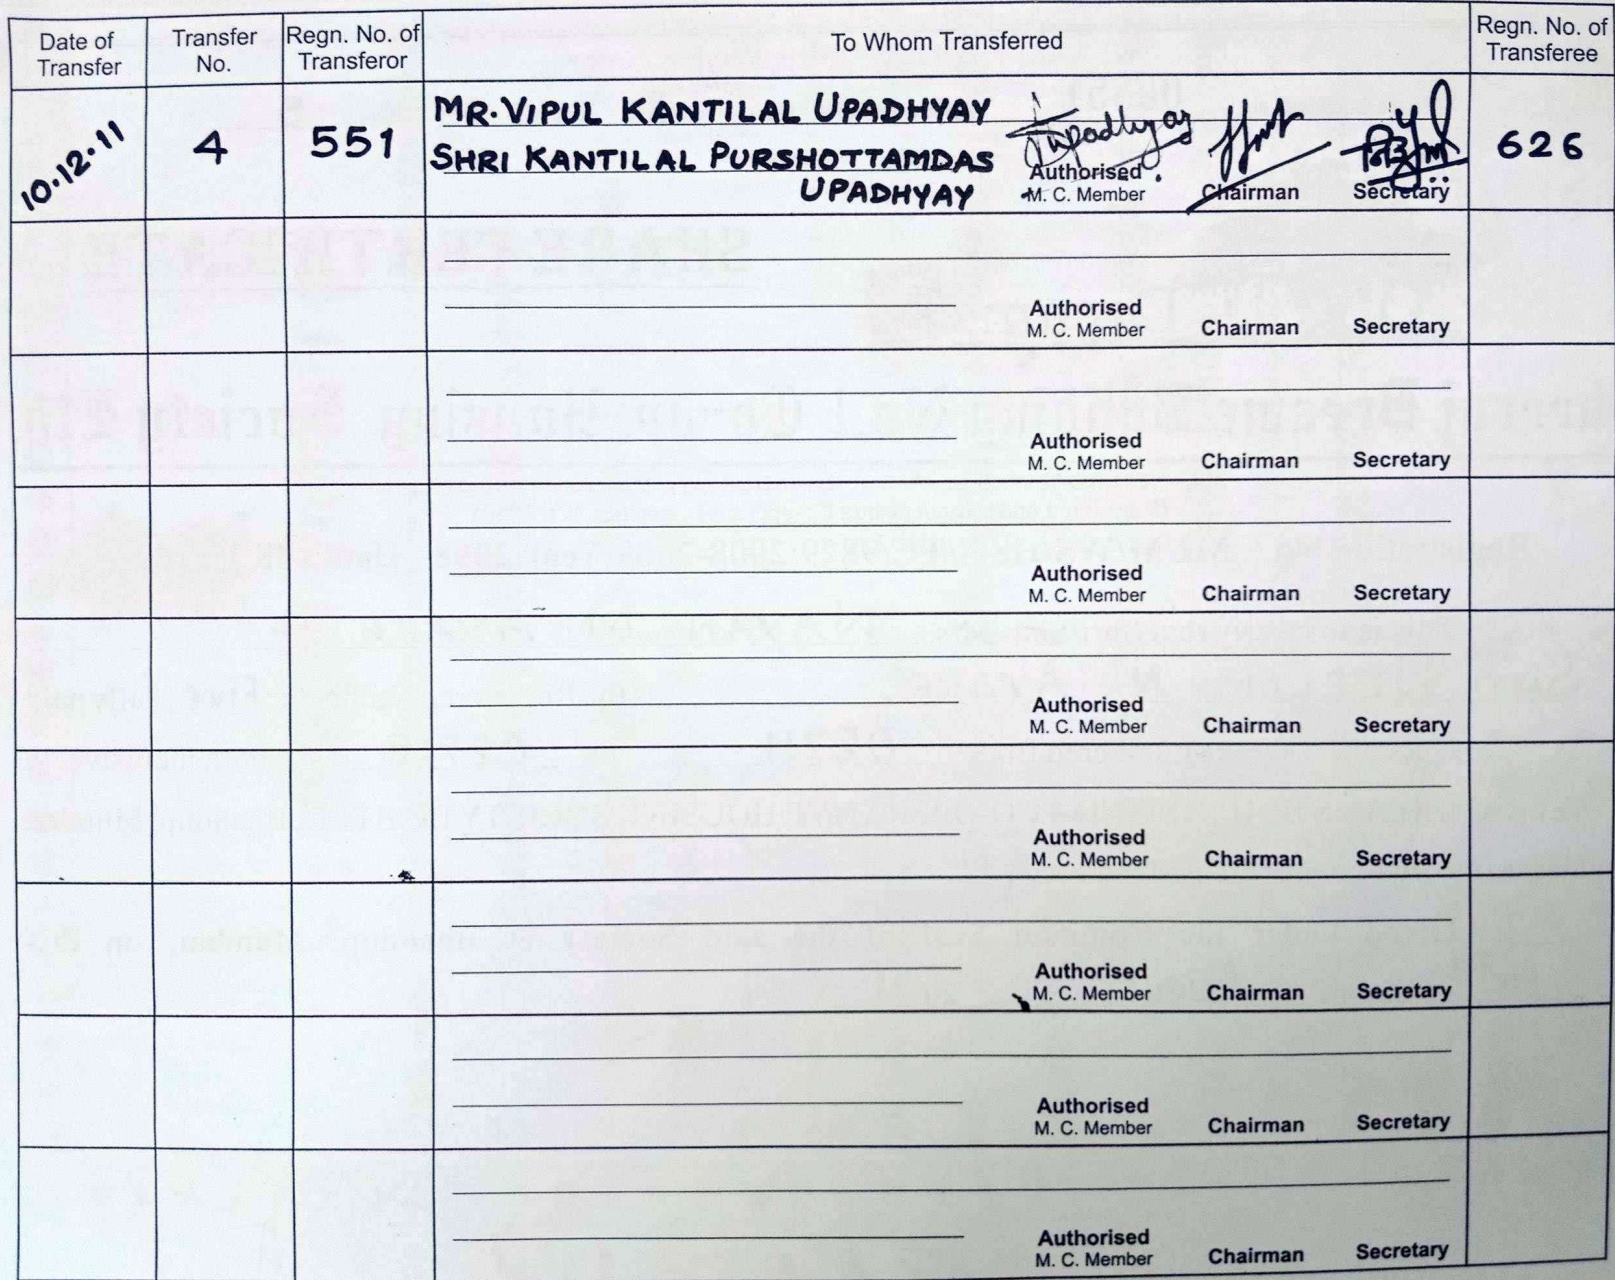 Date of Transfer
Transfer No.
Regn. No. of Transferor
To Whom Transferred
Regn. No. of Transferee
10.12.11
4
551
MR. VIPUL KANTILAL UPADHYAY
SHRI KANTILAL PURSHOTTAMDAS
UPADHYAY
Upadhyay
626
Authorised
M. C. Member Chairman Secretary
Authorised
M. C. Member Chairman Secretary
Authorised
M. C. Member Chairman Secretary
Authorised
M. C. Member Chairman Secretary
Authorised
M. C. Member Chairman Secretary
Authorised
M. C. Member Chairman Secretary
Authorised
M. C. Member Chairman Secretary
Authorised
M. C. Member Chairman Secretary
Authorised
M. C. Member Chairman Secretary